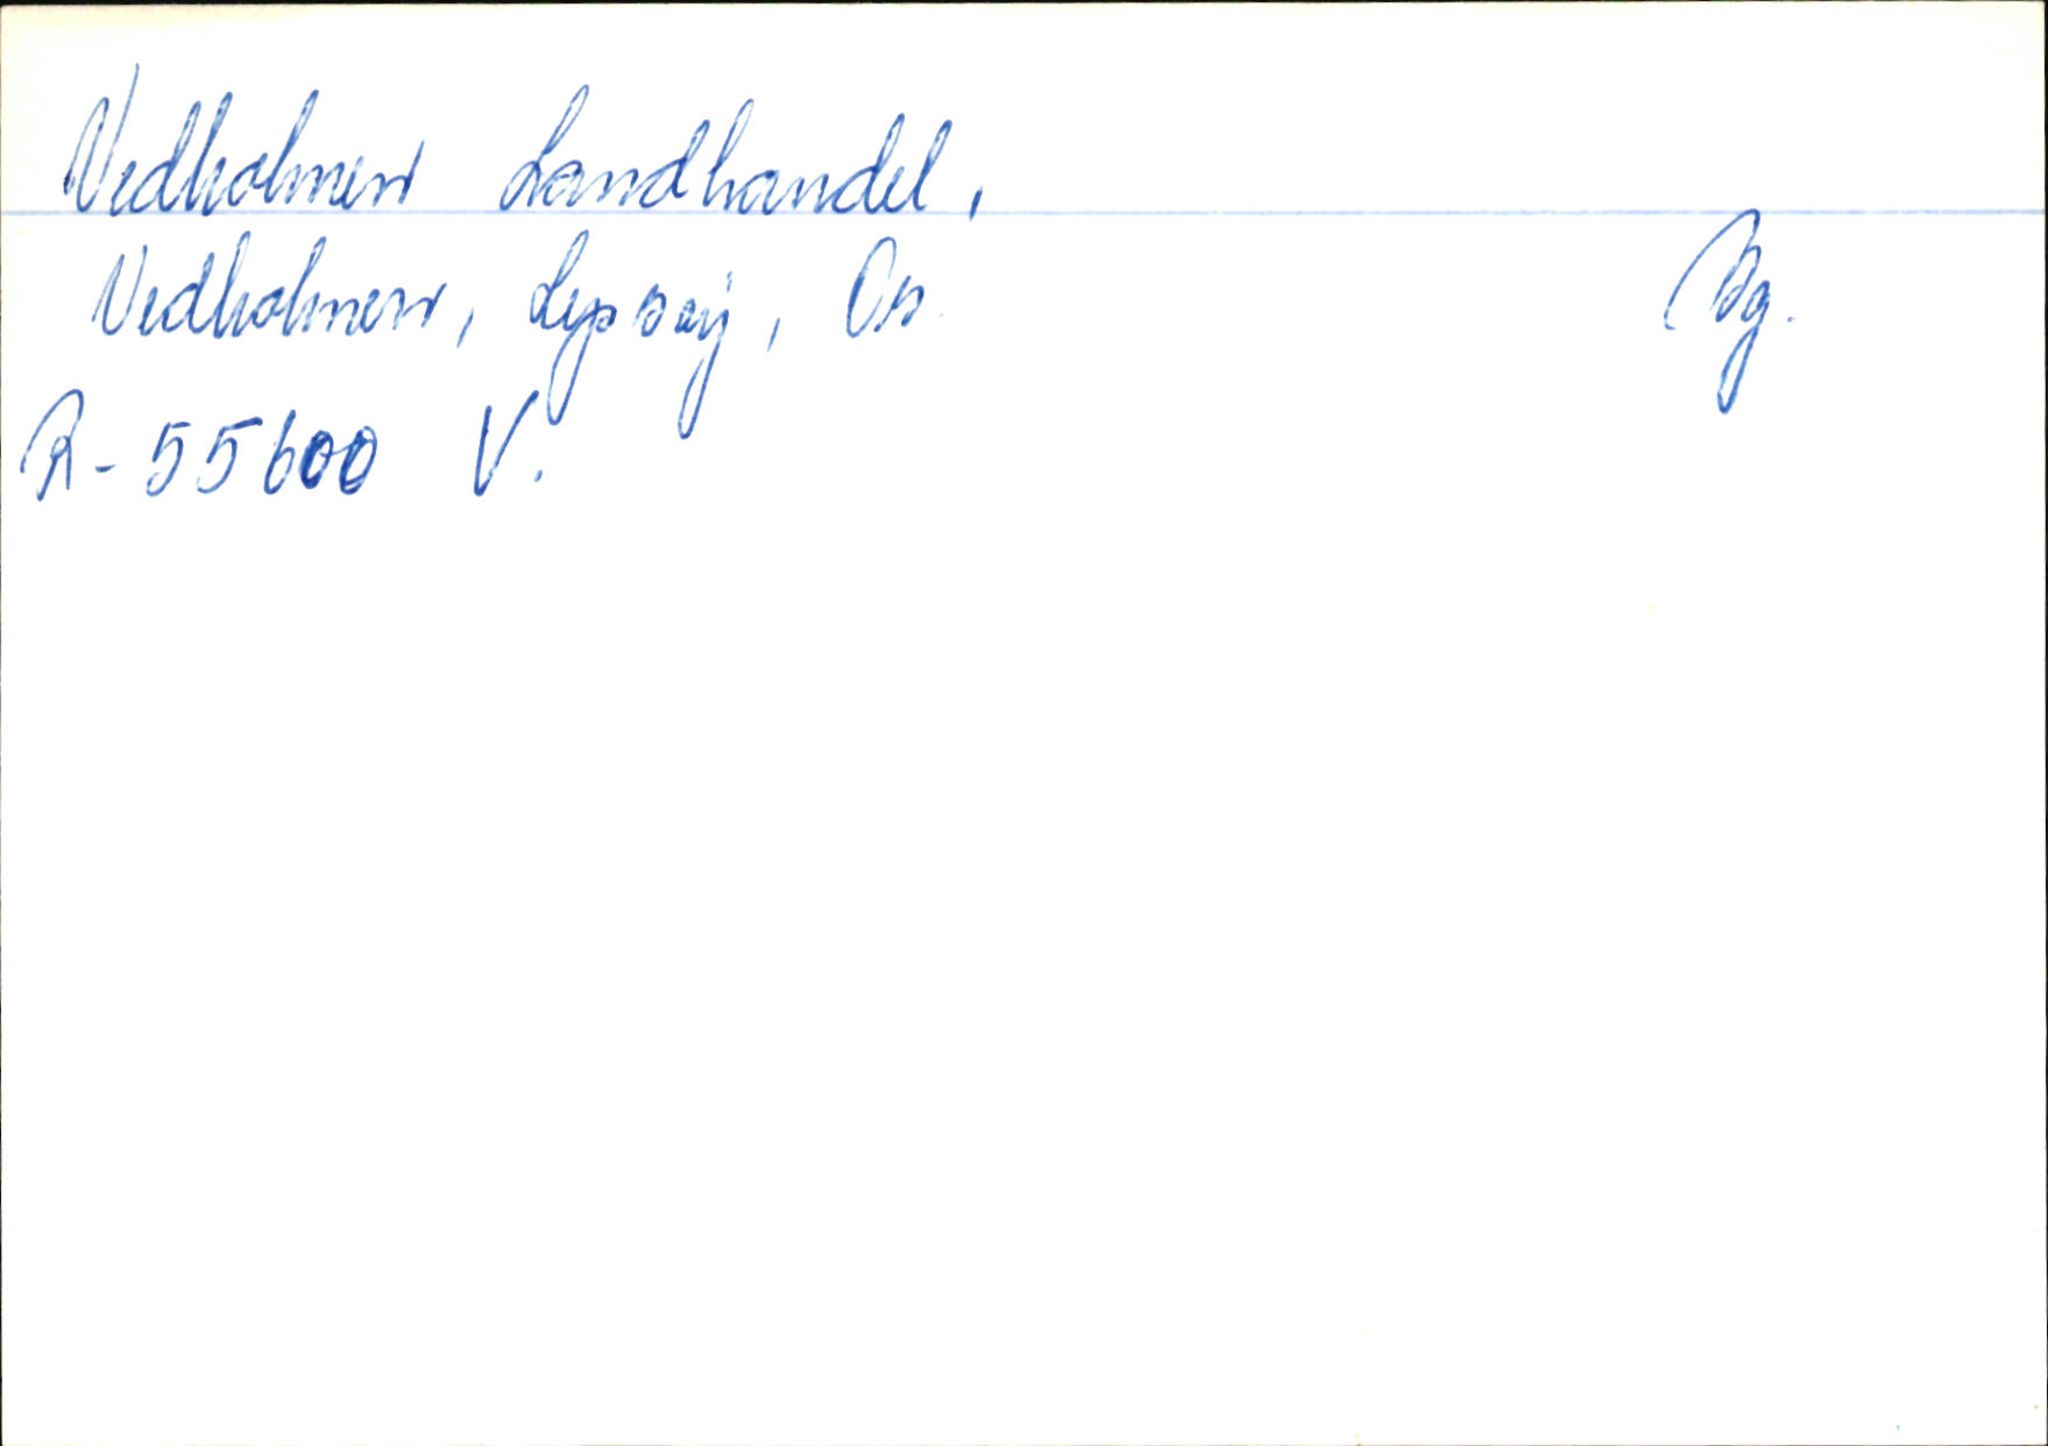 Vedholmen Landhandel,
Vedholmen, Lepsøy, Os.
Vg.
R-55600 V.